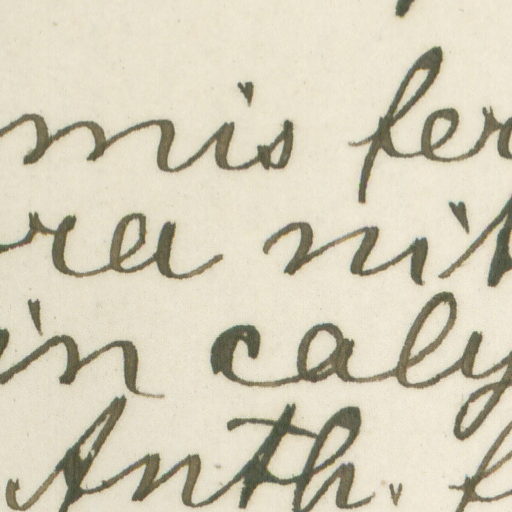 mis fer
ra nit
in caly
Anth. f